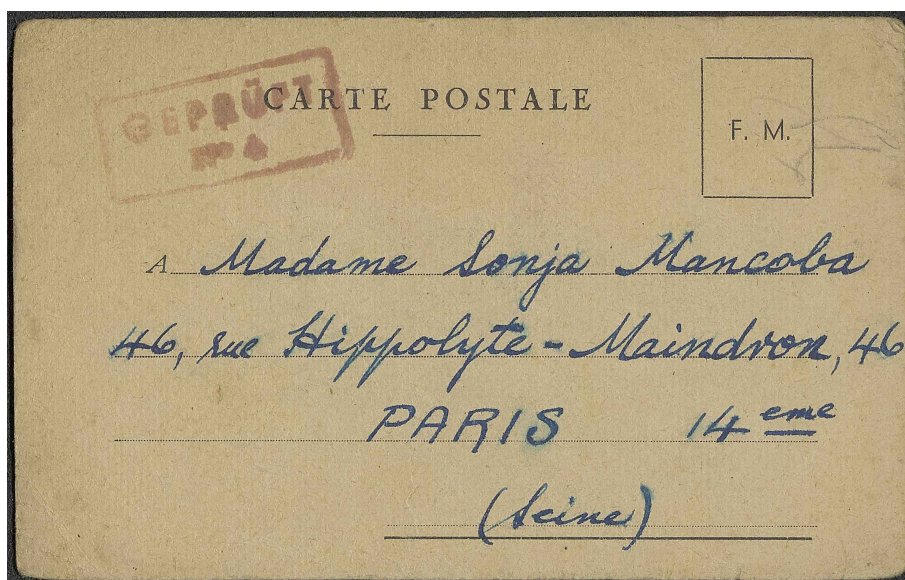 GEPRÜFT
N° 4
CARTE POSTALE
F. M.
A Madame Sonja Mancoba
46, rue Hippolyte-Maindron, 46
PARIS 14 eme
(Seine)